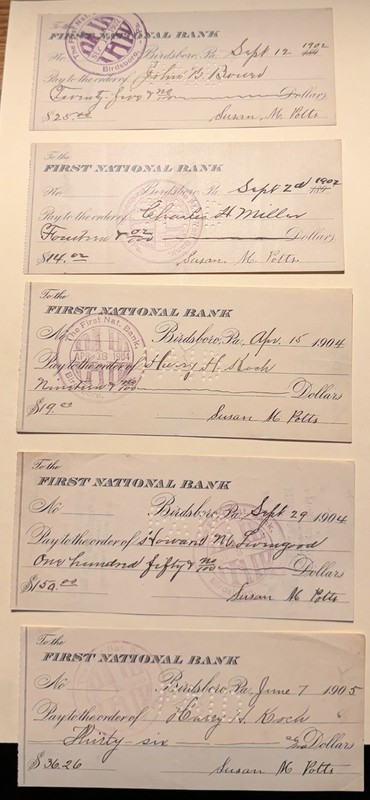 To the
FIRST NATIONAL BANK
No. Birdsboro, Pa. Sept 12 1902
Pay to the order of John G
Twenty five & no/100 Dollars
$25.00 Susan M. Potts
To the
FIRST NATIONAL BANK
No. Birdsboro, Pa. Sept 2d 1902
Pay to the order of Charlie H Miller
Fourteen & 02/100 Dollars
$14.02 Susan M. Potts
To the
FIRST NATIONAL BANK
The First Nat. Bank
APR 18 1904
No Birdsboro, Pa. Apr. 15 1904
Pay to the order of Henry H Koch
Nineteen & no/100 Dollars
$19.00 Susan M Potts
To the
FIRST NATIONAL BANK
No Birdsboro, Pa. Sept 29 1904
Pay to the order of Howard M. Livingood
One hundred fifty & no/100 Dollars
$150.00 Susan M Potts
To the
FIRST NATIONAL BANK
No Birdsboro, Pa. June 7 1905
Pay to the order of Harry H. Koch
Thirty-six 26/100 Dollars
$36.26 Susan M Potts